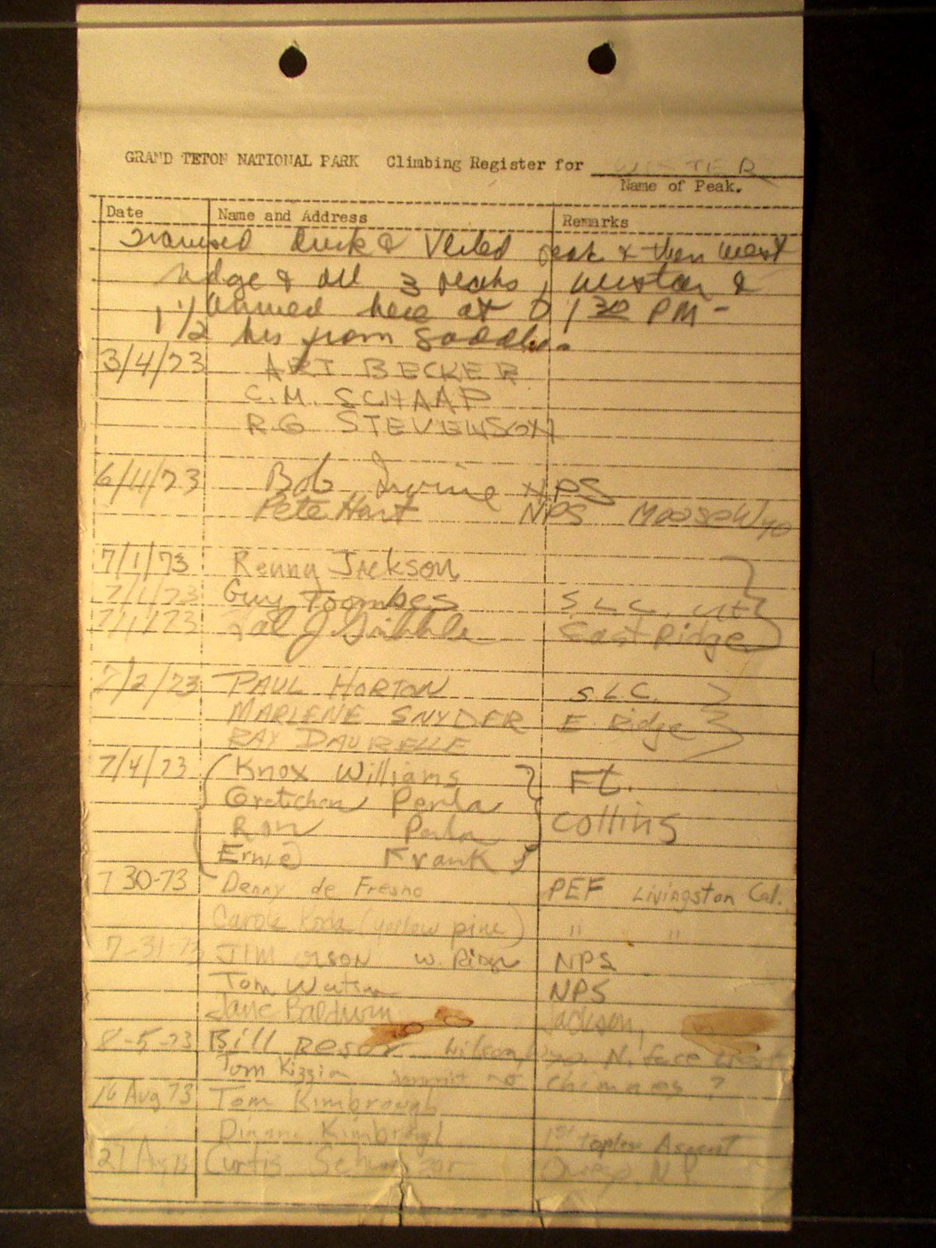 GRAND TETON NATIONAL PARK Climbing Register for WISTER
Name of Peak.
Date Name and Address Remarks
Buck & Veiled peak & then west
ridge & all 3 peaks, Wister &
arrived here at 1 30 PM -
1 1/2 hrs from saddle.
3/4/73 ART BECKER
C.M. SCHAAP
R G STEVENSON
6/4/73 Bob Irving NPS
Pete Hart NPS Moose Wyo
7/1/73 Renny Jackson
7/1/73 Guy Toombes S L C, Ut
7/1/73 J East Ridge
7/2/73 PAUL HORTON S.L.C.
MARLENE SNYDER E Ridge
RAY DAURELLE
7/4/73 Knox Williams Ft.
Gretchen Perla Collins
Ron Perla
Ernie Frank
7 30-73 Denny de Fresno PEF Livingston Cal.
Carole (yellow pine) " "
7-31-73 JIM OLSON W. Ridge NPS
Tom NPS
Jane Baldwin Jackson,
8-5-73 Bill Resor Wilson, Wyo. N. face West
Tom Kizzia summit no chimneys ?
16 Aug 73 Tom Kimbrough
Kimbrough 1st topless Ascent
21 Aug 73 Curtis